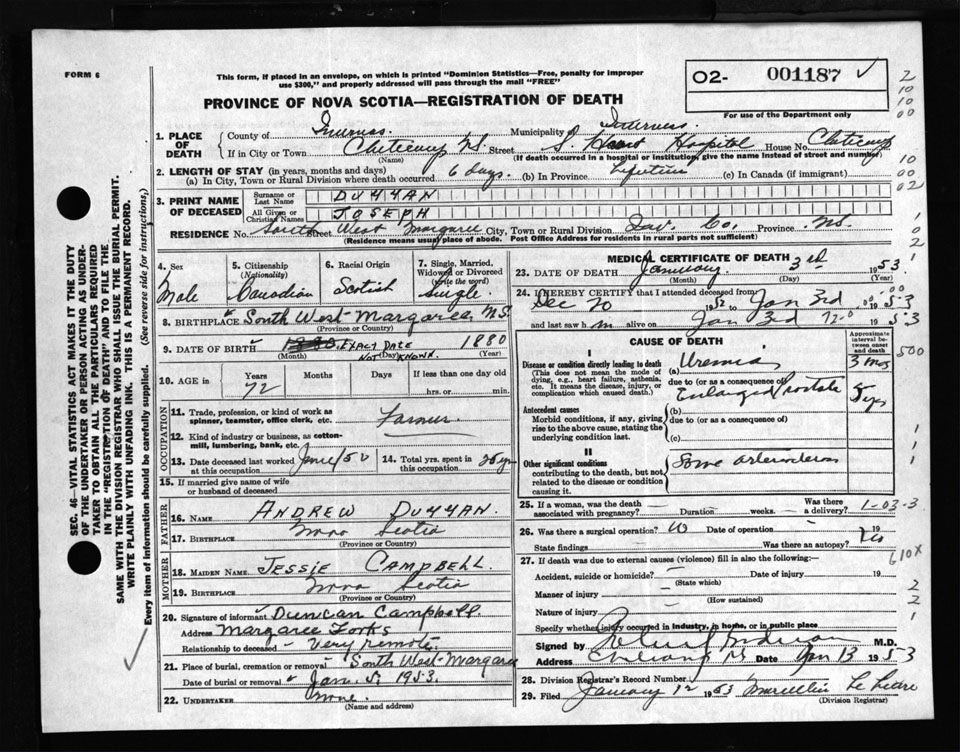 FORM 6
This form, if placed in an envelope, on which is printed "Dominion Statistics—Free, penalty for improper
use $300," and properly addressed will pass through the mail "FREE"
PROVINCE OF NOVA SCOTIA—REGISTRATION OF DEATH
O2- 001187 ✓
For use of the Department only
1. PLACE OF DEATH
County of Inverness Municipality of Inverness
If in City or Town Cheticamp N.S. Street S. Heart Hospital House No. Cheticamp
(Name) (If death occurred in a hospital or institution, give the name instead of street and number)
2. LENGTH OF STAY (in years, months and days)
(a) In City, Town or Rural Division where death occurred 6 days. (b) In Province Lifetime (c) In Canada (if immigrant)
3. PRINT NAME OF DECEASED
Surname or Last Name DUYYAN
All Given or Christian Names JOSEPH
RESIDENCE No. South Street West Margaree City, Town or Rural Division Inv. Co. Province N.S.
(Residence means usual place of abode. Post Office Address for residents in rural parts not sufficient)
4. Sex Male
5. Citizenship (Nationality) Canadian
6. Racial Origin Scotish
7. Single, Married, Widowed or Divorced (write the word) Single
8. BIRTHPLACE South West Margaree, N.S.
(Province or Country)
9. DATE OF BIRTH EXACT DATE NOT KNOWN. 1880
(Month) (Day) (Year)
10. AGE in Years 72 Months Days If less than one day old
hrs. or min.
OCCUPATION
11. Trade, profession, or kind of work as
spinner, teamster, office clerk, etc. Farmer.
12. Kind of industry or business, as cotton-
mill, lumbering, bank, etc.
13. Date deceased last worked at this occupation June/50
14. Total yrs. spent in this occupation
15. If married give name of wife
or husband of deceased
FATHER
16. NAME ANDREW DUYYAN.
17. BIRTHPLACE Nova Scotia
(Province or Country)
MOTHER
18. MAIDEN NAME JESSIE CAMPBELL.
19. BIRTHPLACE Nova Scotia
(Province or Country)
20. Signature of informant Duncan Campbell.
Address Margaree Forks
Relationship to deceased — Very remote.
21. Place of burial, cremation or removal South West Margaree
Date of burial or removal Jan. 5, 1953.
22. UNDERTAKER None.
(Name and address)
MEDICAL CERTIFICATE OF DEATH
23. DATE OF DEATH January 3rd 1953
(Month) (Day) (Year)
24. I HEREBY CERTIFY that I attended deceased from
Dec 20 1952 to Jan 3rd 1953
and last saw h m alive on Jan 3rd 1953
CAUSE OF DEATH
Approximate interval between onset and death
I
Disease or condition directly leading to death (a) Uremia 3 mos
(This does not mean the mode of
dying, e.g., heart failure, asthenia,
etc. It means the disease, injury, or
complication which caused death.)
due to (or as a consequence of)
Enlarged Prostate 5 yrs
Antecedent causes (b)
Morbid conditions, if any, giving
rise to the above cause, stating the
underlying condition last.
due to (or as a consequence of)
(c)
II
Other significant conditions Some
contributing to the death, but not
related to the disease or condition
causing it.
25. If a woman, was the death
associated with pregnancy? — Duration weeks. — Was there a delivery?
26. Was there a surgical operation? Date of operation 19
State findings Was there an autopsy? No
27. If death was due to external causes (violence) fill in also the following:—
Accident, suicide or homicide? Date of injury 19
(State which)
Manner of injury
(How sustained)
Nature of injury
Specify whether injury occurred in industry, in home, or in public place
Signed by M.D.
Address Date Jan 13 1953
28. Division Registrar's Record Number 1
29. Filed January 12 1953 Marcellin
(Division Registrar)
SEC. 46—VITAL STATISTICS ACT MAKES IT THE DUTY
OF THE UNDERTAKER OR PERSON ACTING AS UNDER-
TAKER TO OBTAIN ALL THE PARTICULARS REQUIRED
IN THE "REGISTRATION OF DEATH" AND TO FILE THE
SAME WITH THE DIVISION REGISTRAR WHO SHALL ISSUE THE BURIAL PERMIT.
WRITE PLAINLY WITH UNFADING INK. THIS IS A PERMANENT RECORD.
Every item of information should be carefully supplied. (See reverse side for instructions.)
2
10
10
00
10
00
02
1
0
2
1
500
1
1
1
1-03-3
610X
2
2
1